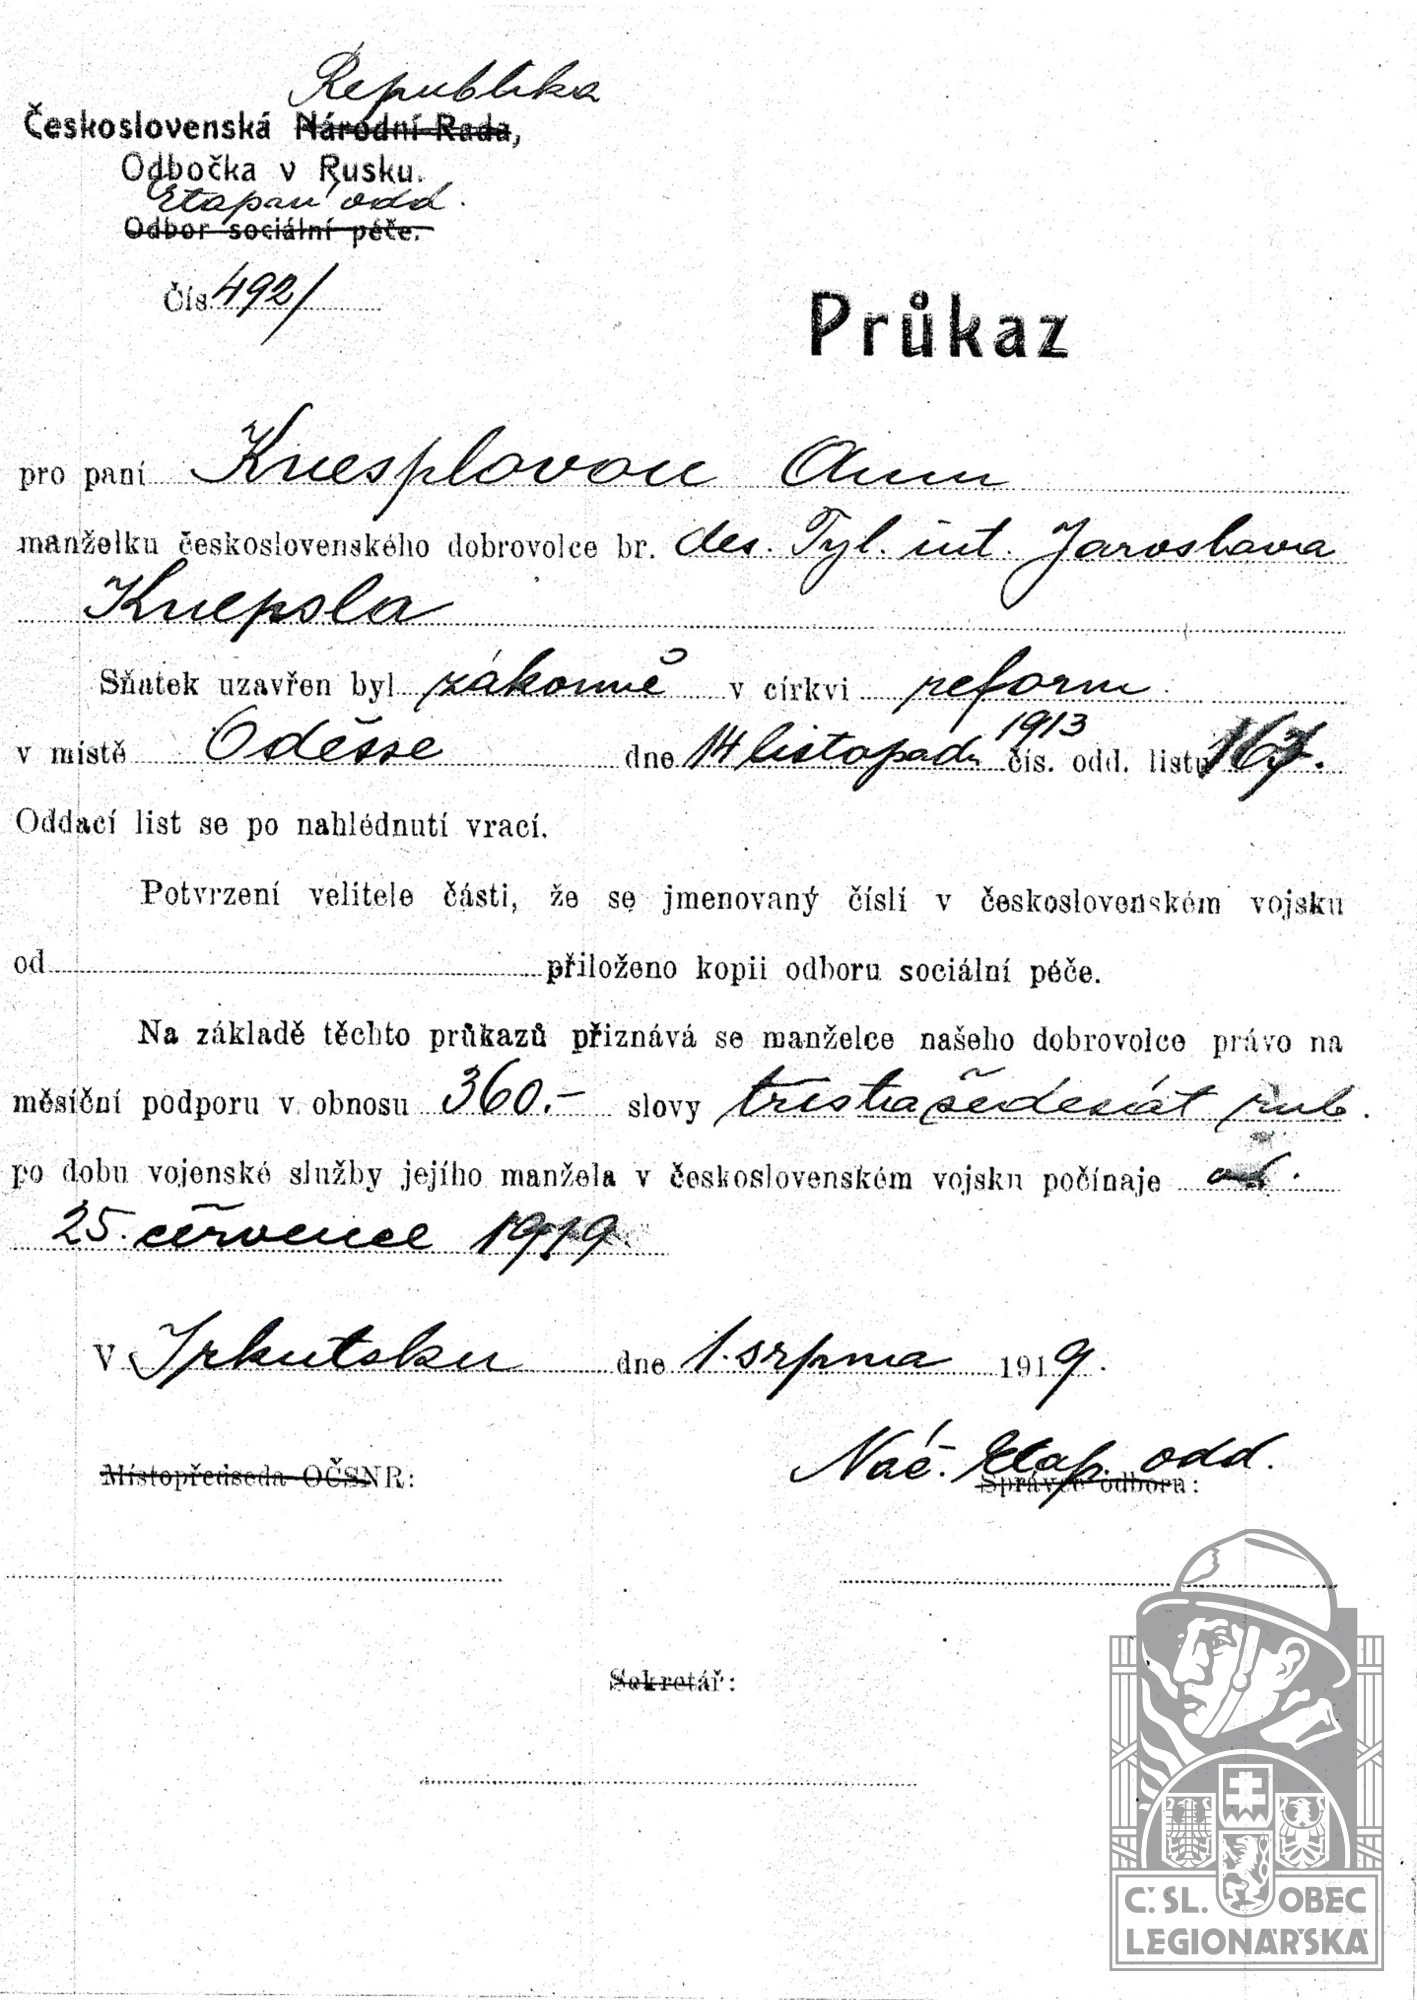 Republika
Československá Národní Rada,
Odbočka v Rusku.
Etapní odd.
Odbor sociální péče.
Čís. 492/
Průkaz
pro paní Knesplovou Annu
manželku československého dobrovolce br. des. Tyl. int. Jaroslava
Knepsla
Sňatek uzavřen byl zákonně v církvi reform.
v místě Oděsse dne 14 listopadu 1913 čís. odd. listu
Oddací list se po nahlédnutí vrací.
Potvrzení velitele části, že se jmenovaný číslí v československém vojsku
od přiloženo kopii odboru sociální péče.
Na základě těchto průkazů přiznává se manželce našeho dobrovolce právo na
měsíční podporu v obnosu 360.- slovy třistašedesát rub.
po dobu vojenské služby jejího manžela v československém vojsku počínaje od
25. července 1919.
V Irkutsku dne 1. srpna 1919.
Náč. Etap. odd.
Místopředseda OČSNR: Správce odboru:
Sekretář:
Č. SL. OBEC
LEGIONÁŘSKÁ